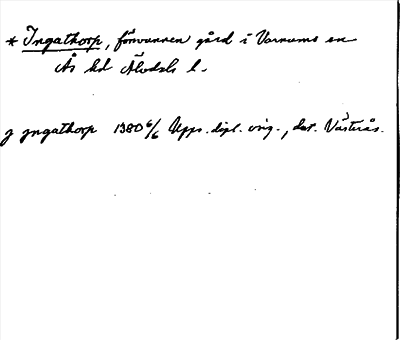 * Ingathorp, försvunnen gård i Varnums sn
Ås hd Älvsb. l.
j jngathorp 1380 6/6 Upps. dipl. orig., dat. Västerås.